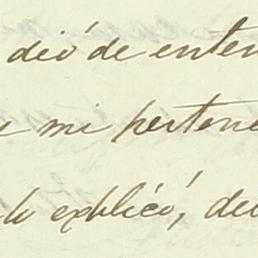 dió de enten
mi pertene
lo explicó, de